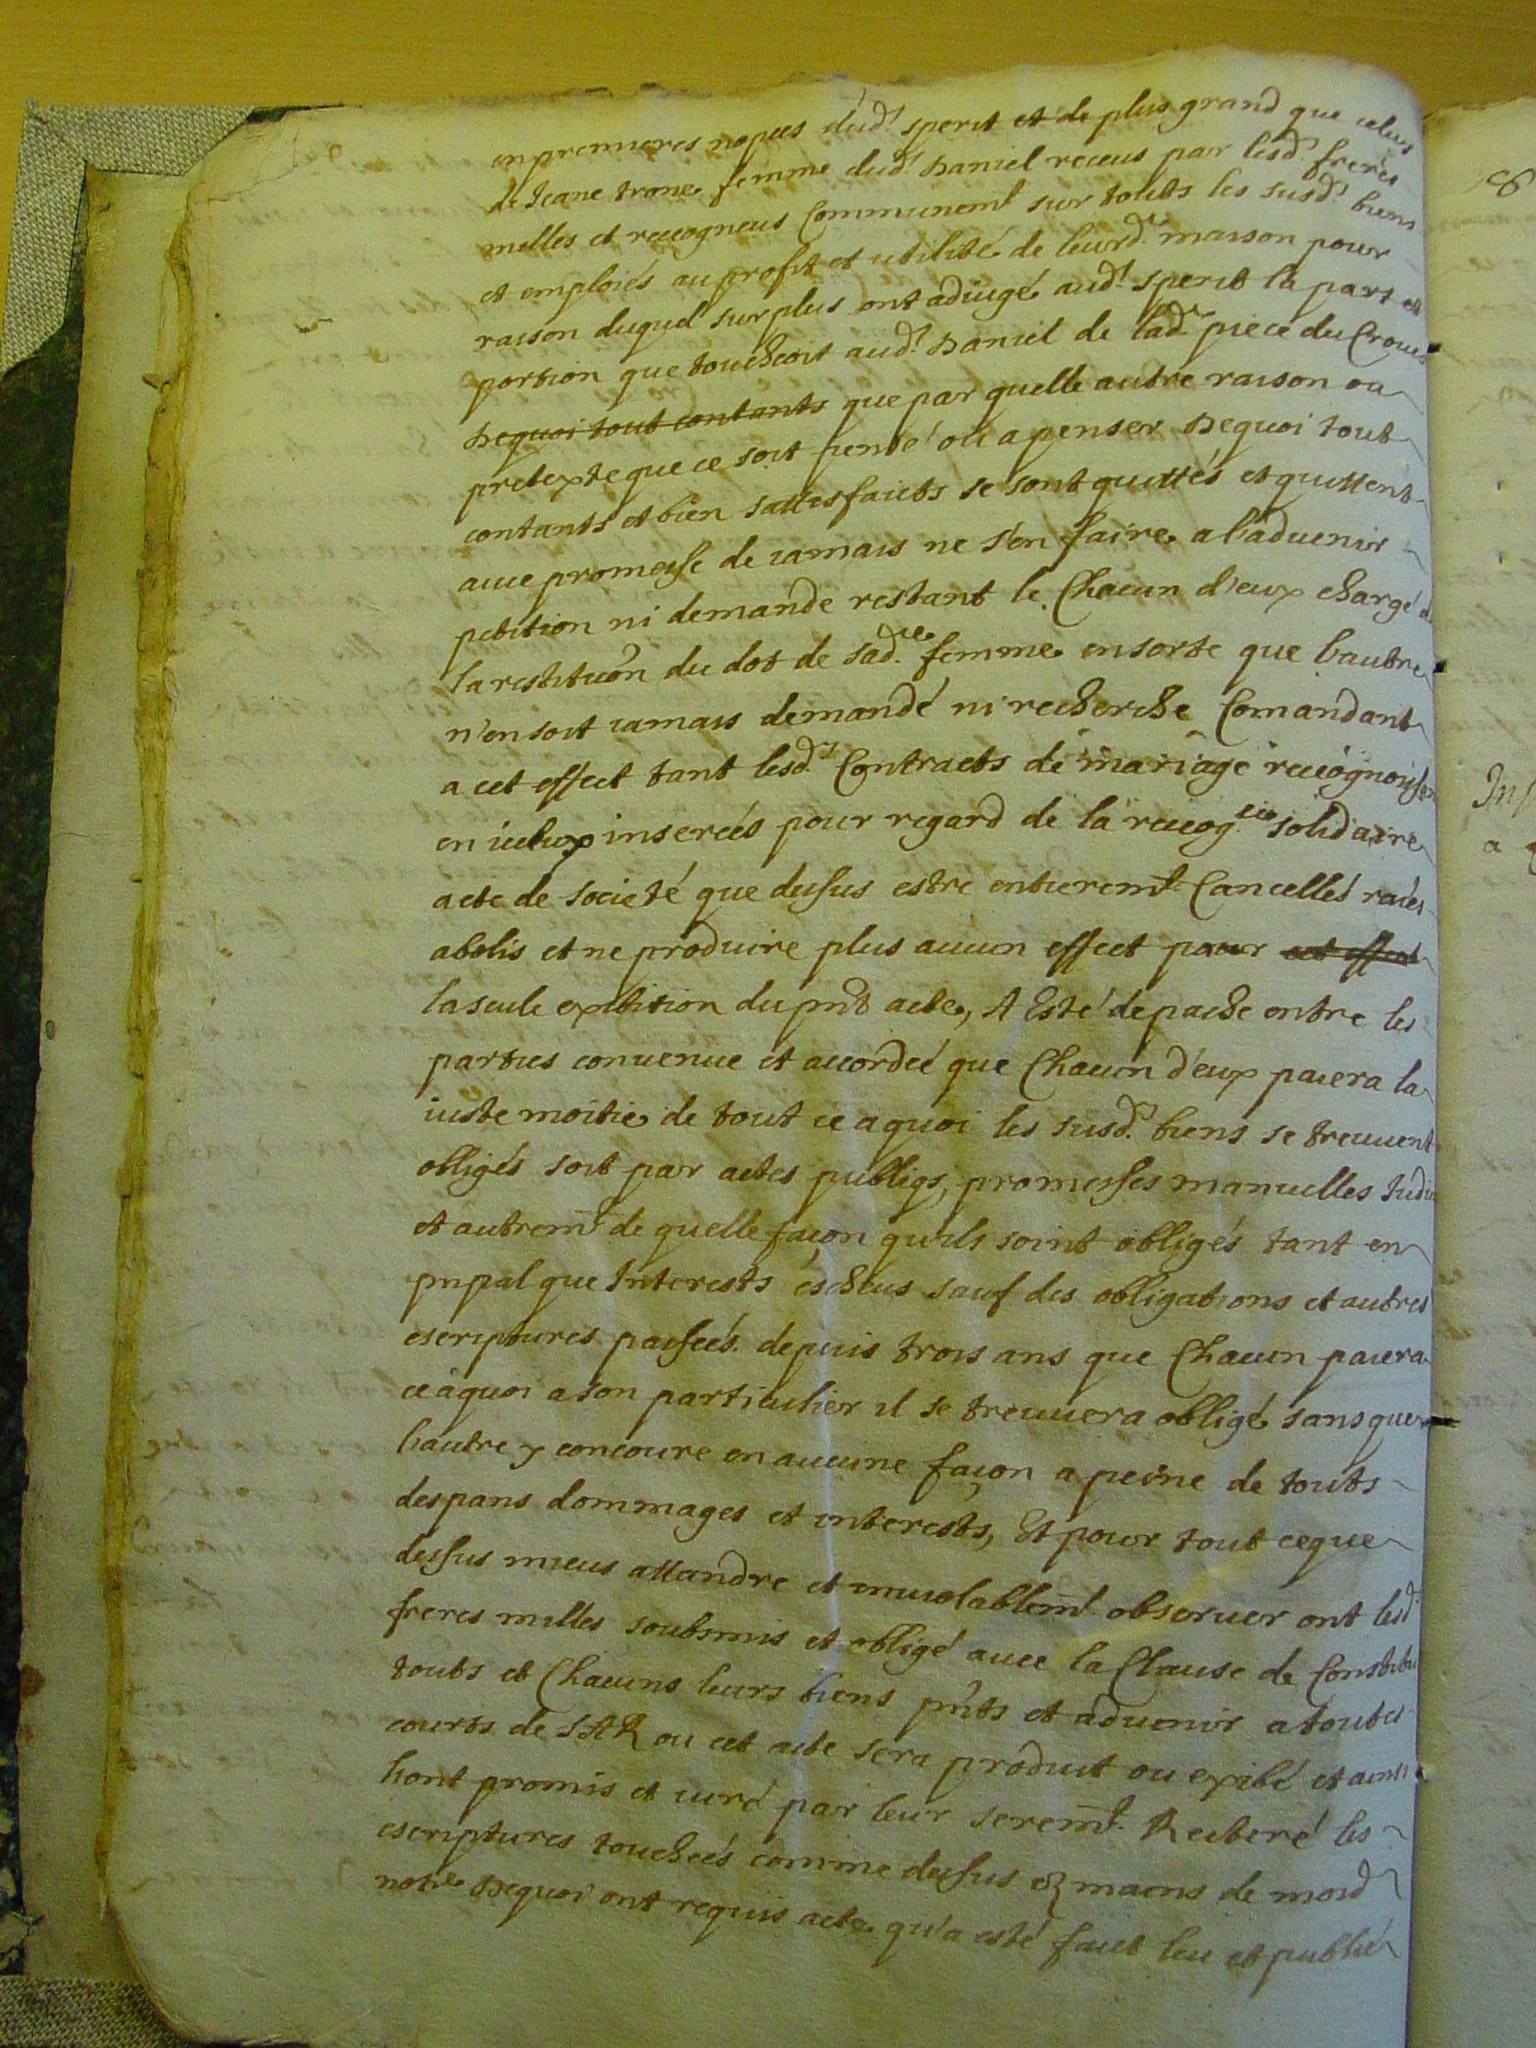 en premieres nopces dud.t sperit et de plus grand que celuy
de Jeane trone femme dud.t Daniel receus par lesd.s freres
milles et recogneus Communem.t sur touts les susd.s biens
et emploiés au profit et utilité de leurd.e maison pour
raison duquel surplus ont adiugé aud.t sperit la part et
portion que touchoit aud.t Daniel de lad.e piece du Croues
Dequoi tout contants que par quelle autre raison ou
pretexte que ce soit pensé ou a penser Dequoi tout
contants et bien sattisfaicts se sont quittés et quittent
avec promesse de iamais ne s'en faire a l'aduenir
petition ni demande restant le Chacun d'eux chargé de
la restituõn du dot de sad.te femme ensorte que l'autre
n'en soit iamais demandé ni recherche Comandant
a cet effect tant lesd.s Contracts de mariage recognoissen
en iceluy inserées pour regard de la recog.ce solidaire
acte de societé que dessus estre entierem.t Cancellés raiés
abolis et ne produire plus aucun effect pour cet effect
la seule exibition du pñt acte, A Esté de pache entre les
parties conuenue et accordeé que Chacun d'eux paiera la
iuste moitie de tout ce a quoi les susd.s biens se treuuent
obligés soit par actes publiqs, promesses manuelles Judic
et autrem.t de quelle façon quils soint obligés tant en
pnpal que Interests escheus sauf des obligations et autres
escriptures passeés depuis trois ans que Chacun paiera
ce a quoi a son particulier il se treuuera obligé sans que
l'autre y concoure en aucune façon a peine de touts
despans dommages et interests, Et pour tout ce que
dessus mieus attandre et inuiolablem.t obseruer ont lesd.s
freres milles soubsmis et obligé auec la Clause de Constitu
touts et Chacuns leurs biens pñts et aduenir a toutes
courts de SAR ou cet acte sera produit ou exibé et ainsi
l'ont promis et iuré par leur serem.t Reiteré les
escriptures toucheés comme dessus ez mains de moid
not.re Dequoi ont requis acte qu'a esté faict leu et publié
8
Inf
a